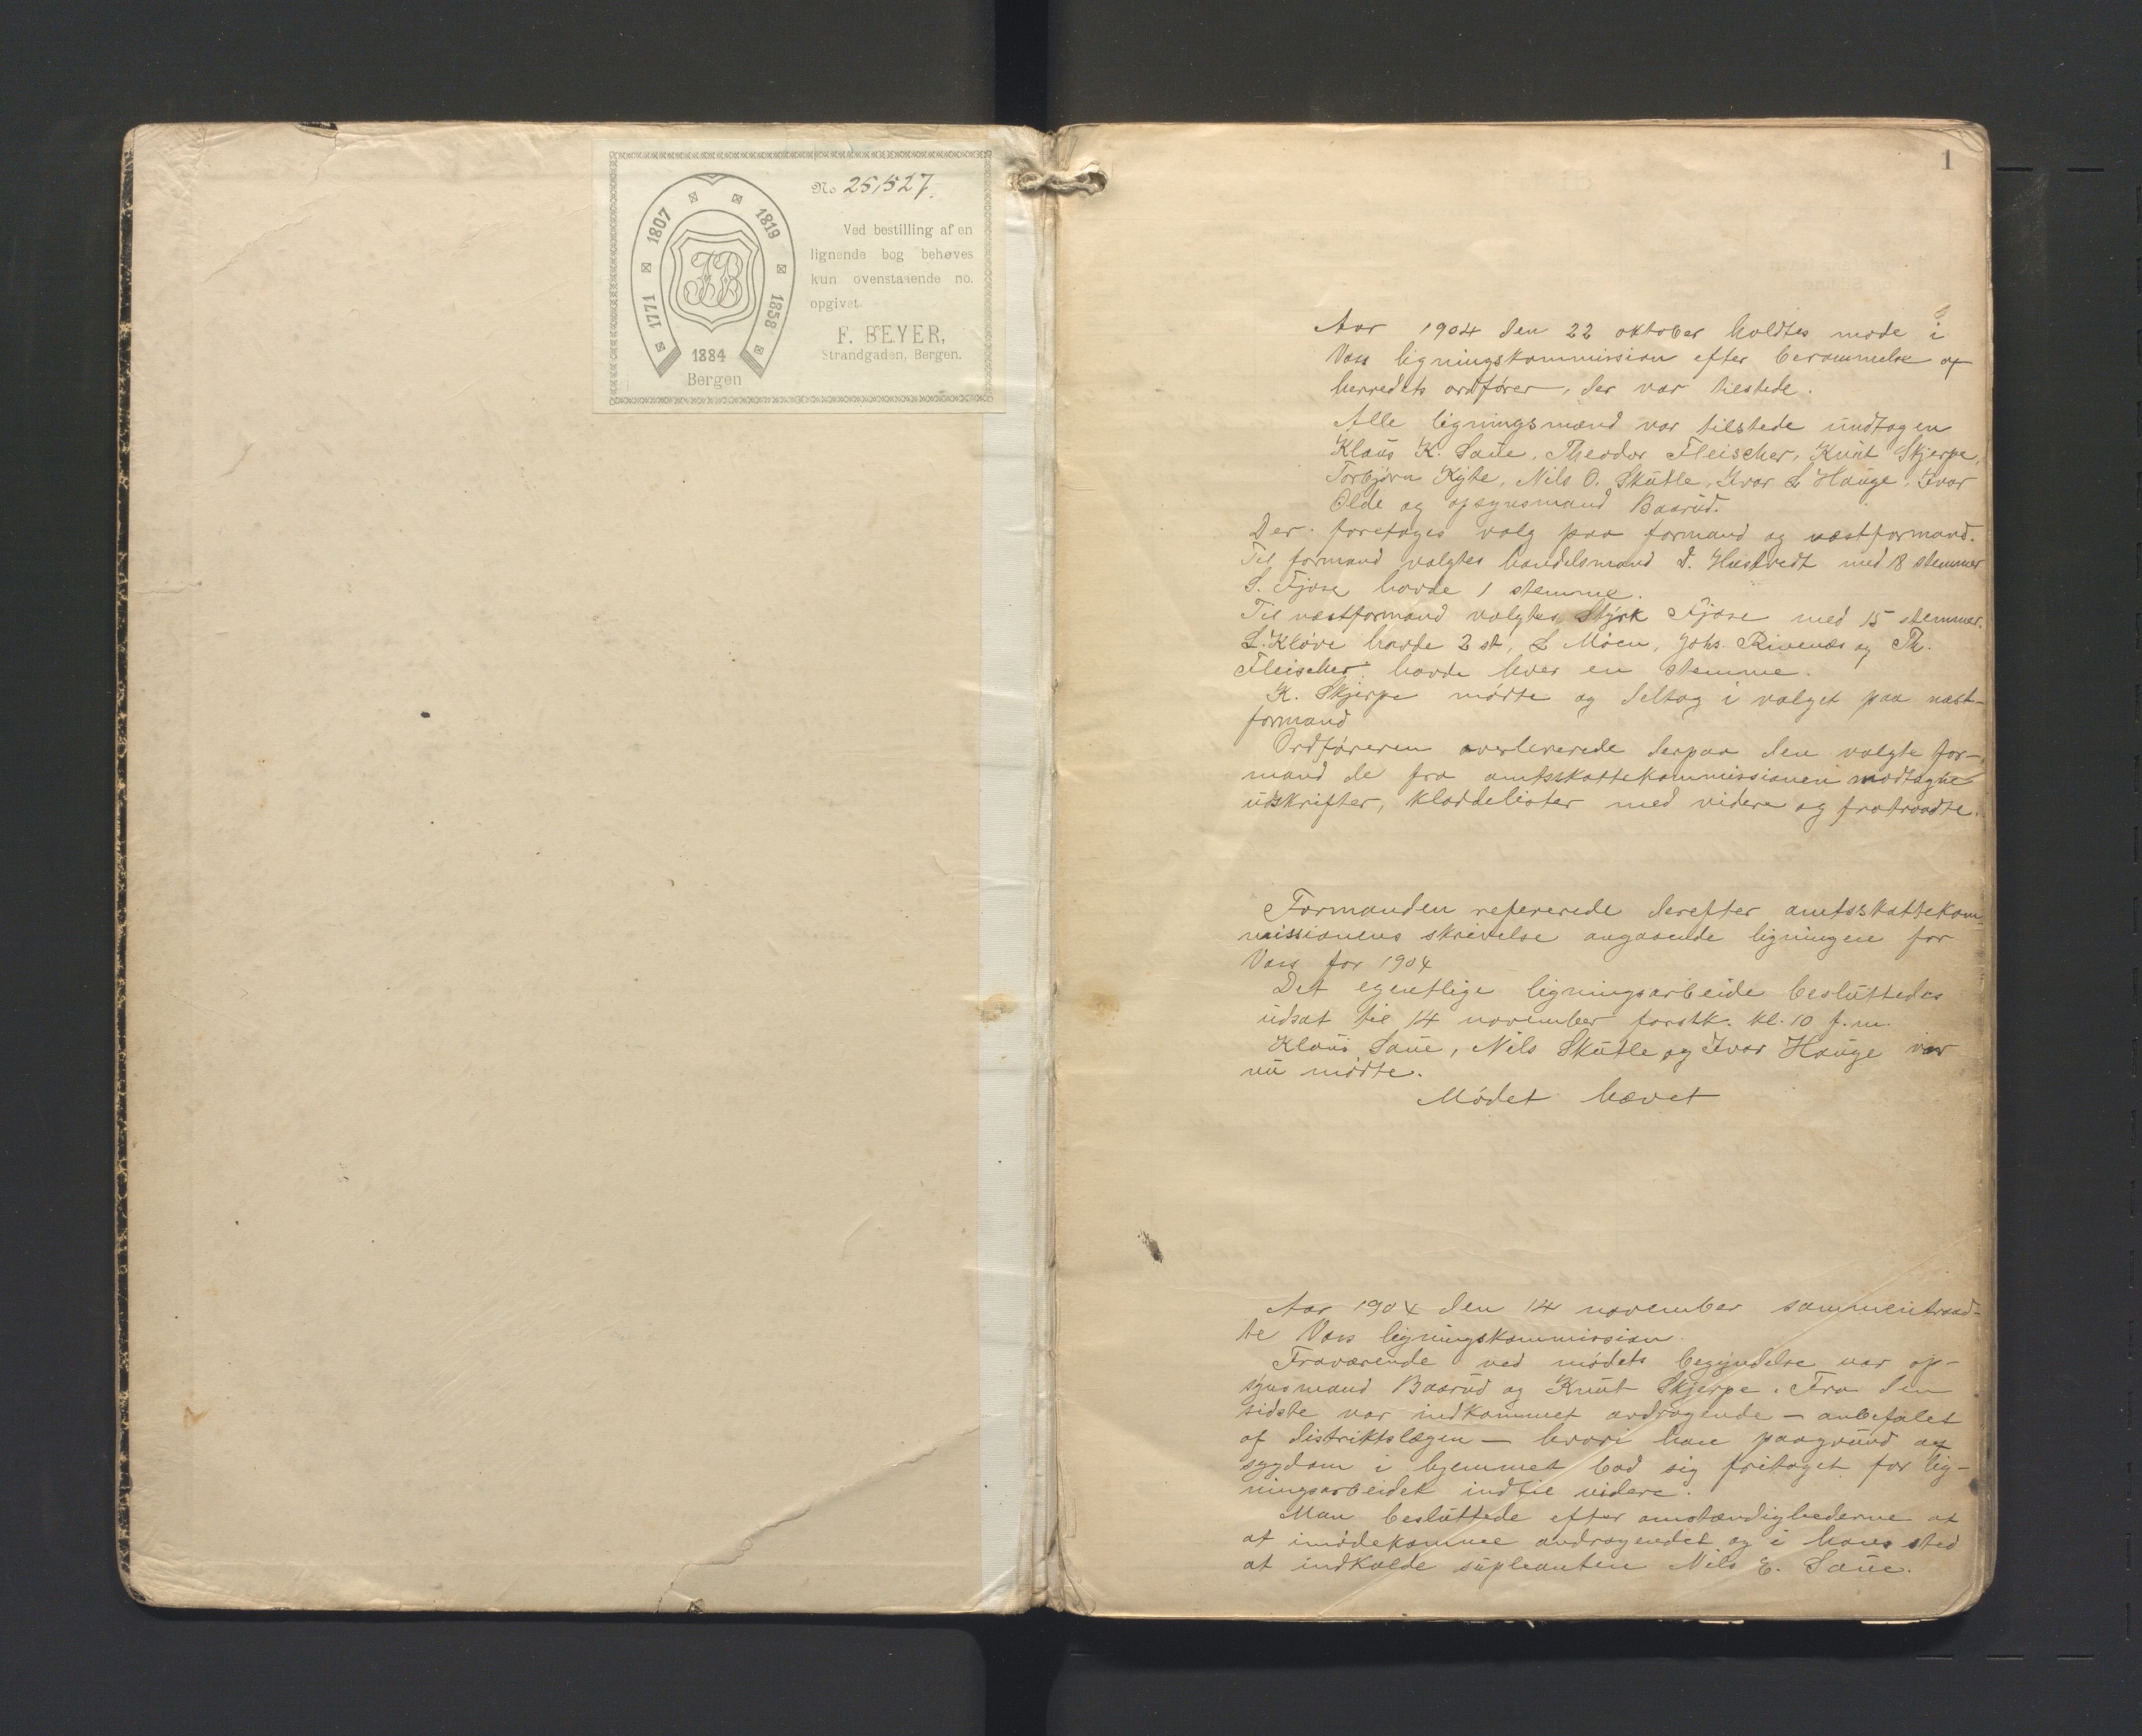 No 25/527.
Ved bestilling af en
lignende bog behøves
kun ovenstaaende no.
opgivet.
F. BEYER,
Strandgaden, Bergen.
1771 1807 1819 1858
1884
Bergen
1
Aar 1904 den 22 oktober holdtes møde i
Voss ligningskommission efter berammelse af
herredets ordfører, der var tilstede.
Alle ligningsmænd var tilstede undtagen
Klaus K. Saue, Theodor Fleischer, Knut Skjerpe,
Torbjørn Kyte, Nils O. Skutle, Ivar L Hauge, Ivar
Olde og opsynsmand Baarud.
Der foretoges valg paa formand og næstformand.
Til formand valgtes handelsmand D. Hustvedt med 18 stemmer
S. Fjose havde 1 stemme.
Til næstformand valgtes Styrk Fjose med 15 stemmer.
L. Kløve havde 2 st, L Møen, Johs. Rivenæs og Th.
Fleischer havde hver en stemme.
K. Skjerpe mødte og deltog i valget paa næst-
formand
Ordføreren overleverede derpaa den valgte for-
mand de fra amtsskattekommissionen modtagne
udskrifter, kladdelister med videre og fratraadte.
Formanden refererede derefter amtsskattekom-
missionens skrivelse angaaende ligningen for
Voss for 1904
Det egentlige ligningsarbeide besluttedes
udsat til 14 november førstk. kl. 10 f.m.
Klaus Saue, Nils Skutle og Ivar Hauge var
nu mødte.
Mødet hævet
Aar 1904 den 14 november sammentraad-
te Voss ligningskommission.
Fraværende ved mødets begyndelse var op-
synsmand Baarud og Knut Skjerpe. Fra den
sidste var indkommet andragende – anbefalet
af distriktslægen – hvori han paagrund af
sygdom i hjemmet bad sig fritaget for lig-
ningsarbeidet indtil videre.
Man besluttede efter omstændighederne at
at imødekomme andragendet og i hans sted
at indkalde supleanten Nils E. Saue.